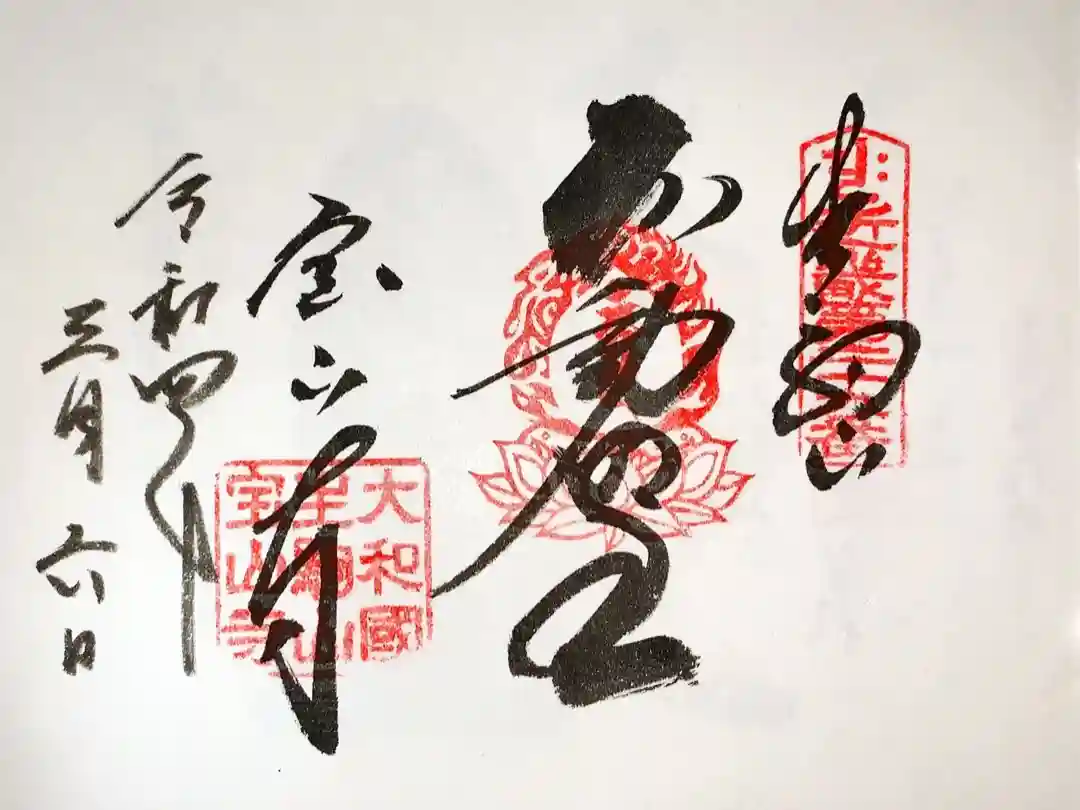 生駒山
不動明王
宝山寺
大和國
生駒山
宝山寺
令和四年
三月六日